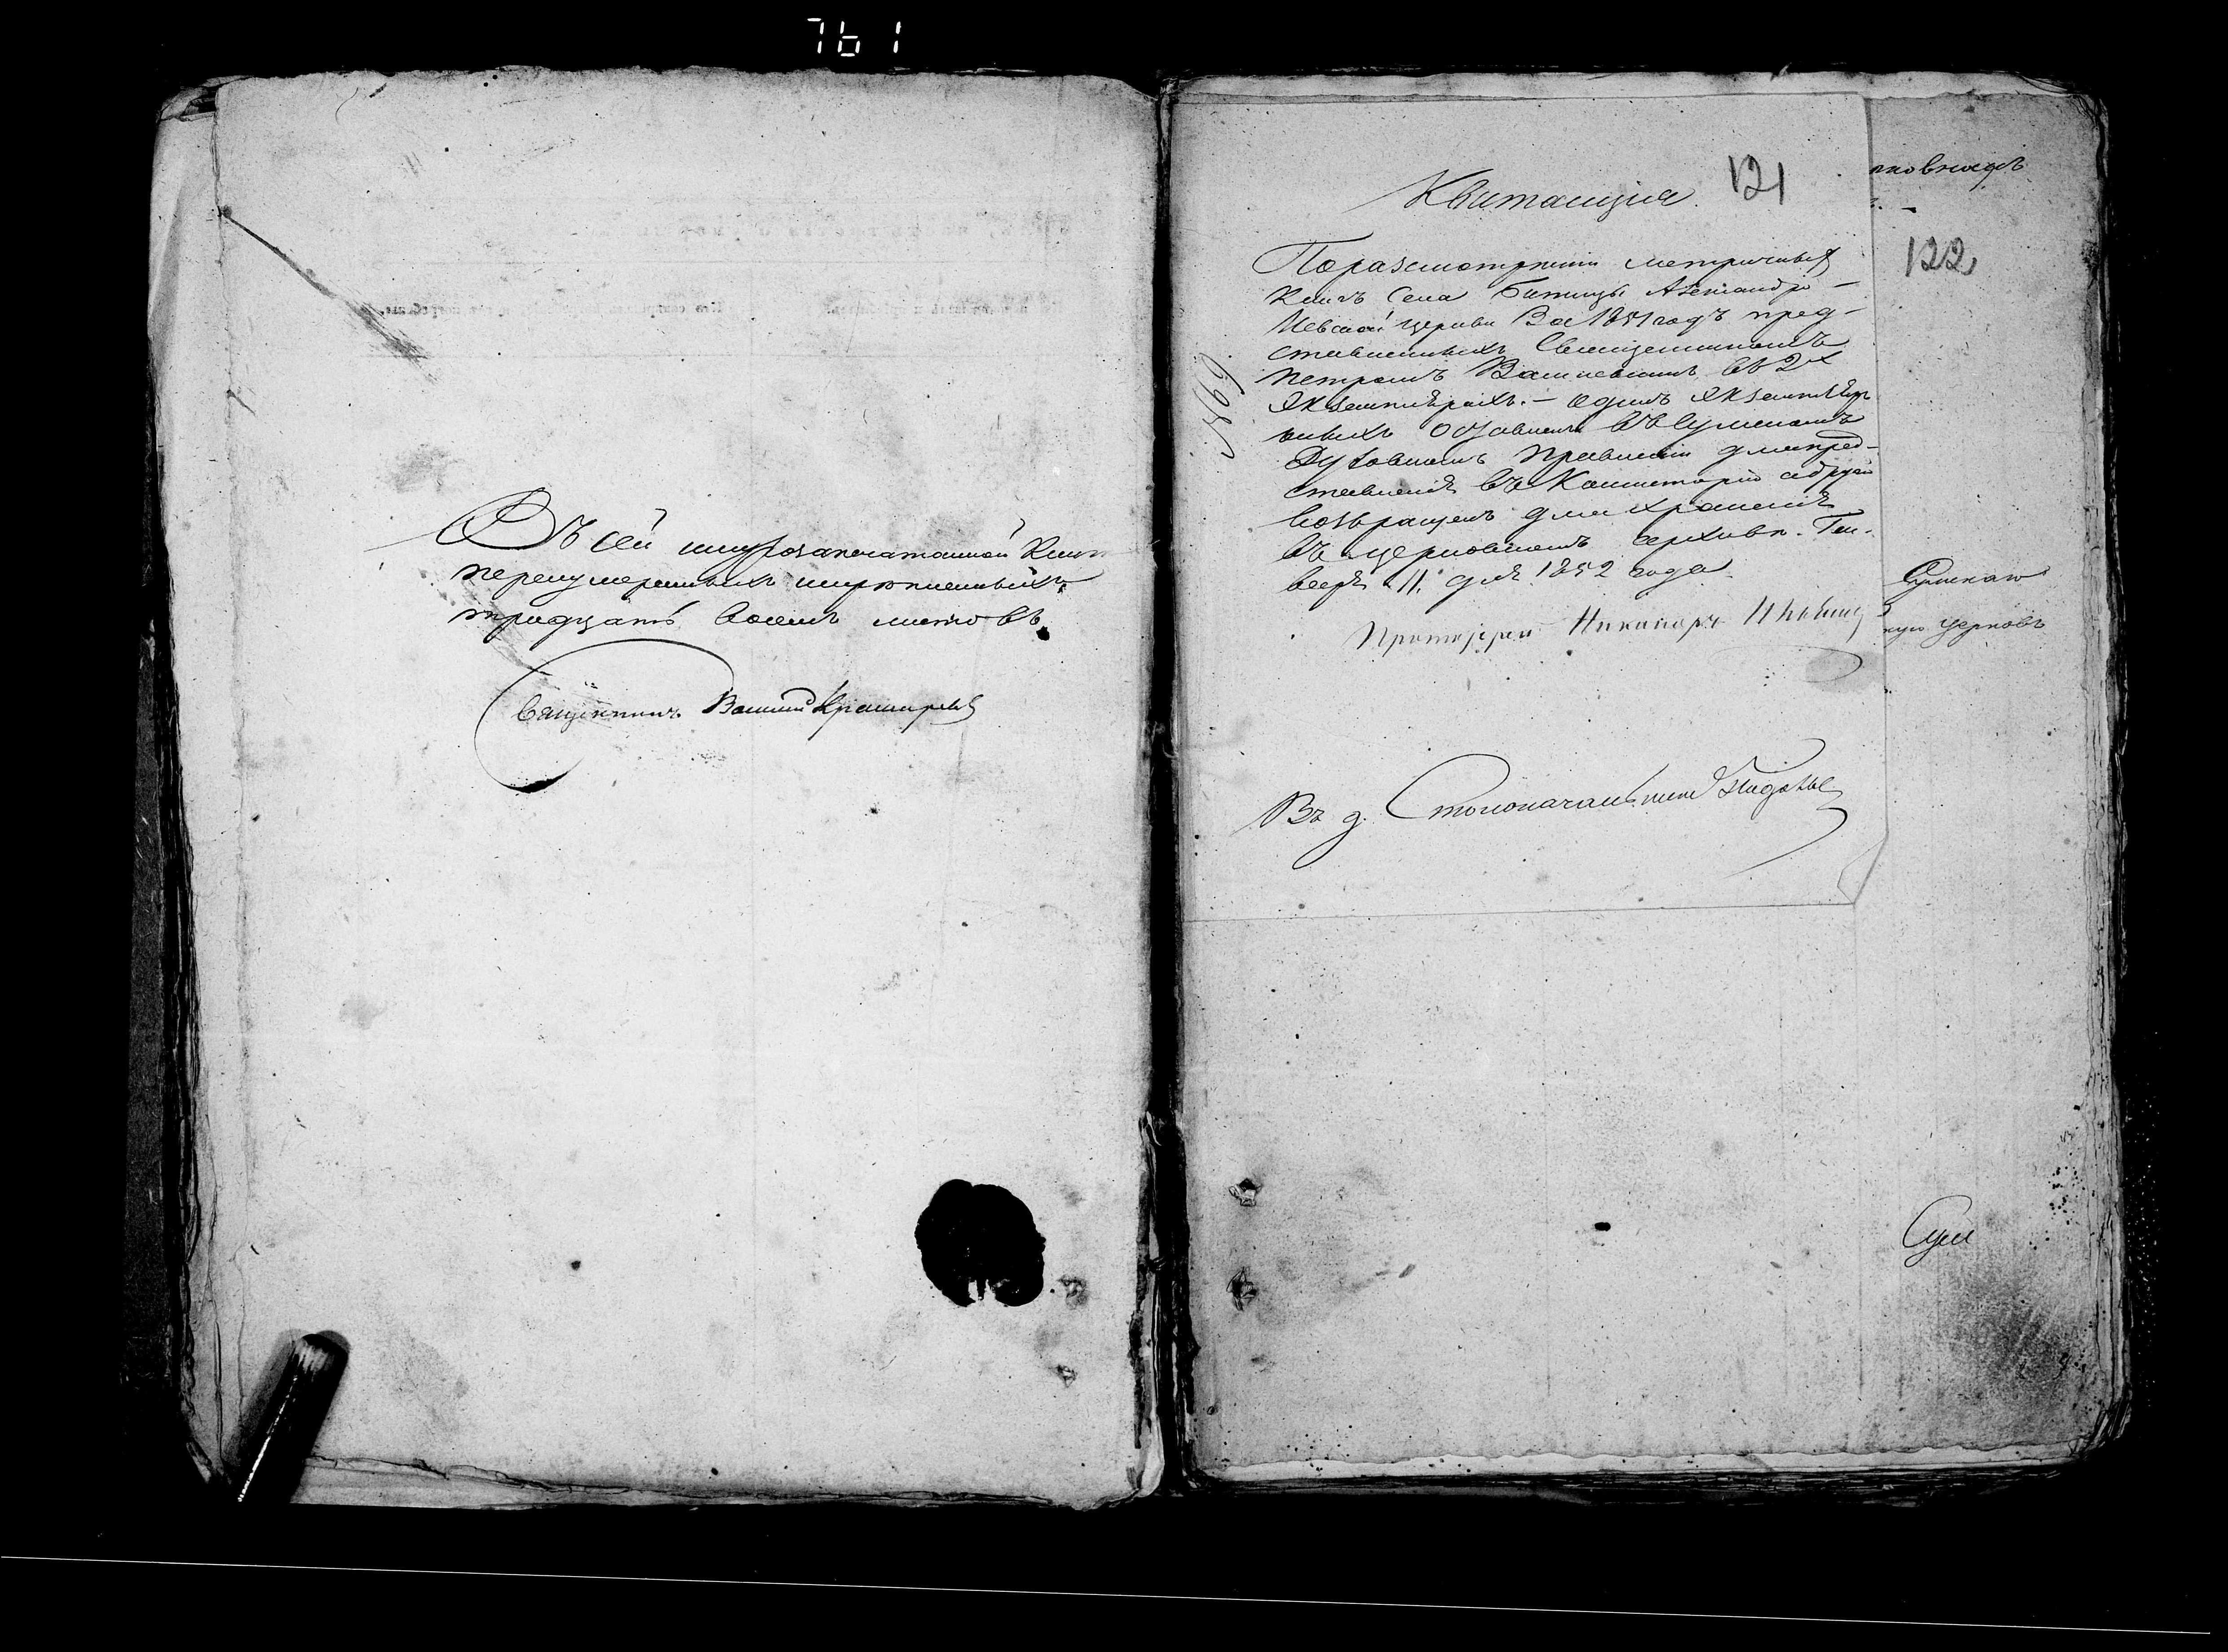 761
Въ сей шнурозапечатанной Книг
перенумерованныхъ
тридцать восемь листовъ
Священникъ Василий
121
Квитанція
По разсмотреніи метричныхъ
Книгъ Села Битицы Александро-
Невской церкви За 1851 годъ пред-
ставленныхъ Священникомъ
Петромъ въ 2х
Экземплярахъ. — одинъ экземпляръ
оныхъ оставленъ въ Сумскомъ
Духовномъ Правленіи для пред-
ставленія въ Консисторію а другой
возвращенъ для храненія
въ церковномъ Архиве. Ген-
варя 11. дня 1852 года.
Протоіерей Никаноръ
Въ д. Столоначальника
122
Сумскаго
кую церковь
Сум